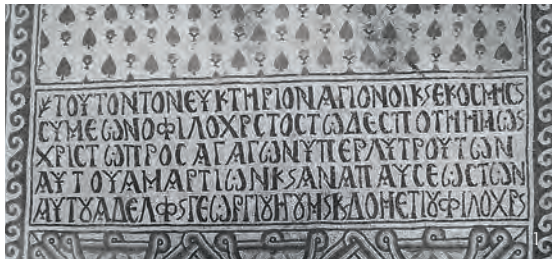 ϯΤΟΥΤΟΝΤΟΝΕΥΚΤΗΡΙΟΝΑΓΙΟΝΟΙΚSΕΚΟCΜΗCS
CΥΜΕωΝΟΦΙΛΟΧΡCΤΟCΤωΔΕCΠΟΤΗΗΜωS
ΧΡΙCΤωΠΡΟCΑΓΑΓωΝΥΠΕΡΛΥΤΡΟΥΤωΝ
ΑΥΤΟΥΑΜΑΡΤΙωΝΚSΑΝΑΠΑΥCΕωCΤωΝ
ΑΥΤȢΑΔΕΛΦSΓΕωΡΓΙȢΗΓȢΜSΚΔΟΜΕΤΙȢΦΙΛΟΧΡS
1